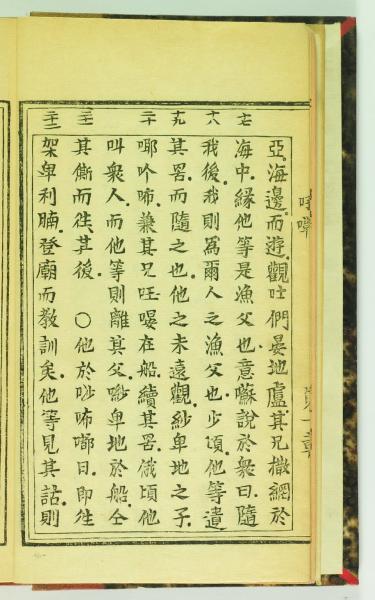 亞海邊而遊觀吐們晏地盧其兄撒網於
十七
海中緣他等是漁父也意嘛說於衆曰隨
十八
我後我則爲爾人之漁父也少頃他等遺
十九
其罟而隨之也他之未遠觀紗卑地之子
二十
耶吟咘兼其兄㕵嚗在船續其罟俄頃他
叫衆人而他等則離其父唦卑地於船仝
二十一
其㒋而徃其後 〇他於唦咘嘟日即徃
二十二
架卑利㖠登廟而敎訓矣他等見其詁則
第一章